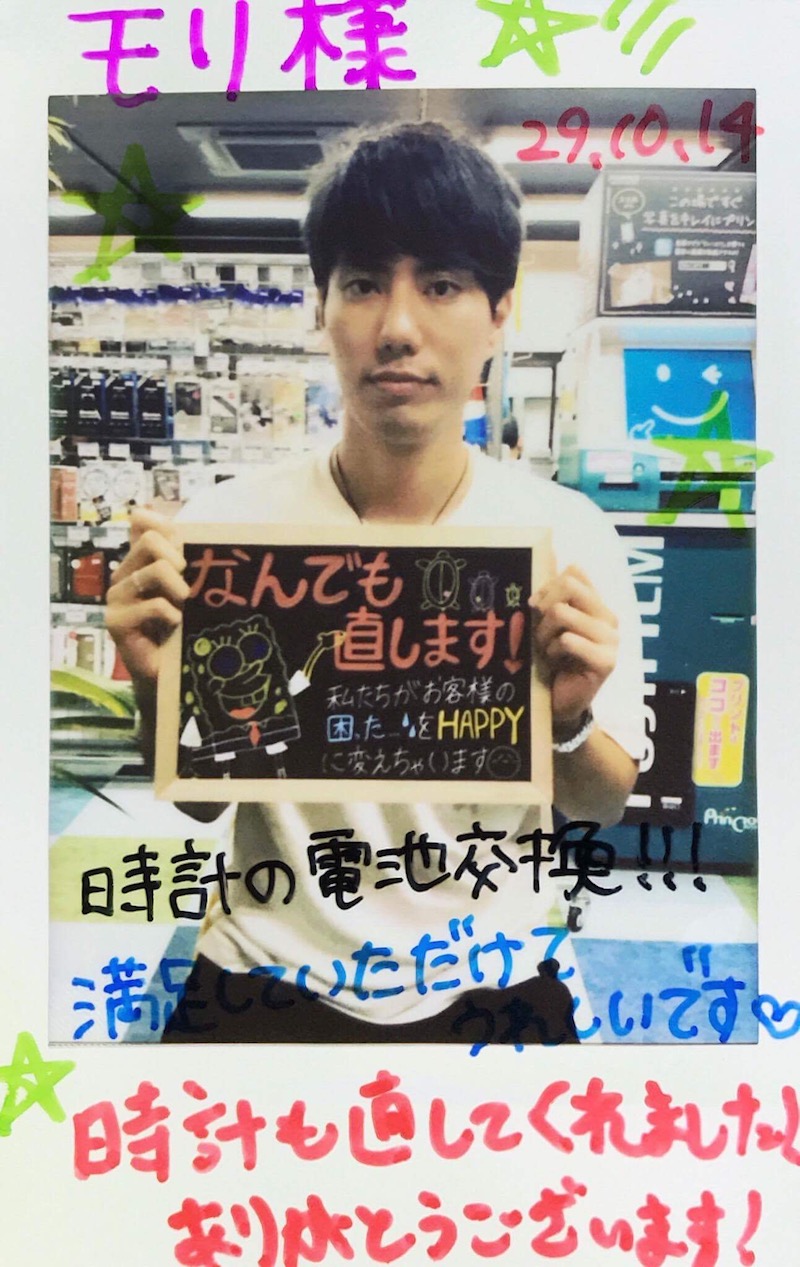 モリ様
29.10.14
この場ですぐ
写真をキレイにプリン
なんでも
直します!
私たちがお客様の
困った…をHAPPY
に変えちゃいます
プリントが
ココから
出ます
PrinCia
時計の電池交換!!!
満足していただけて
うれしいです♡
時計も直してくれました!
ありがとうございます!